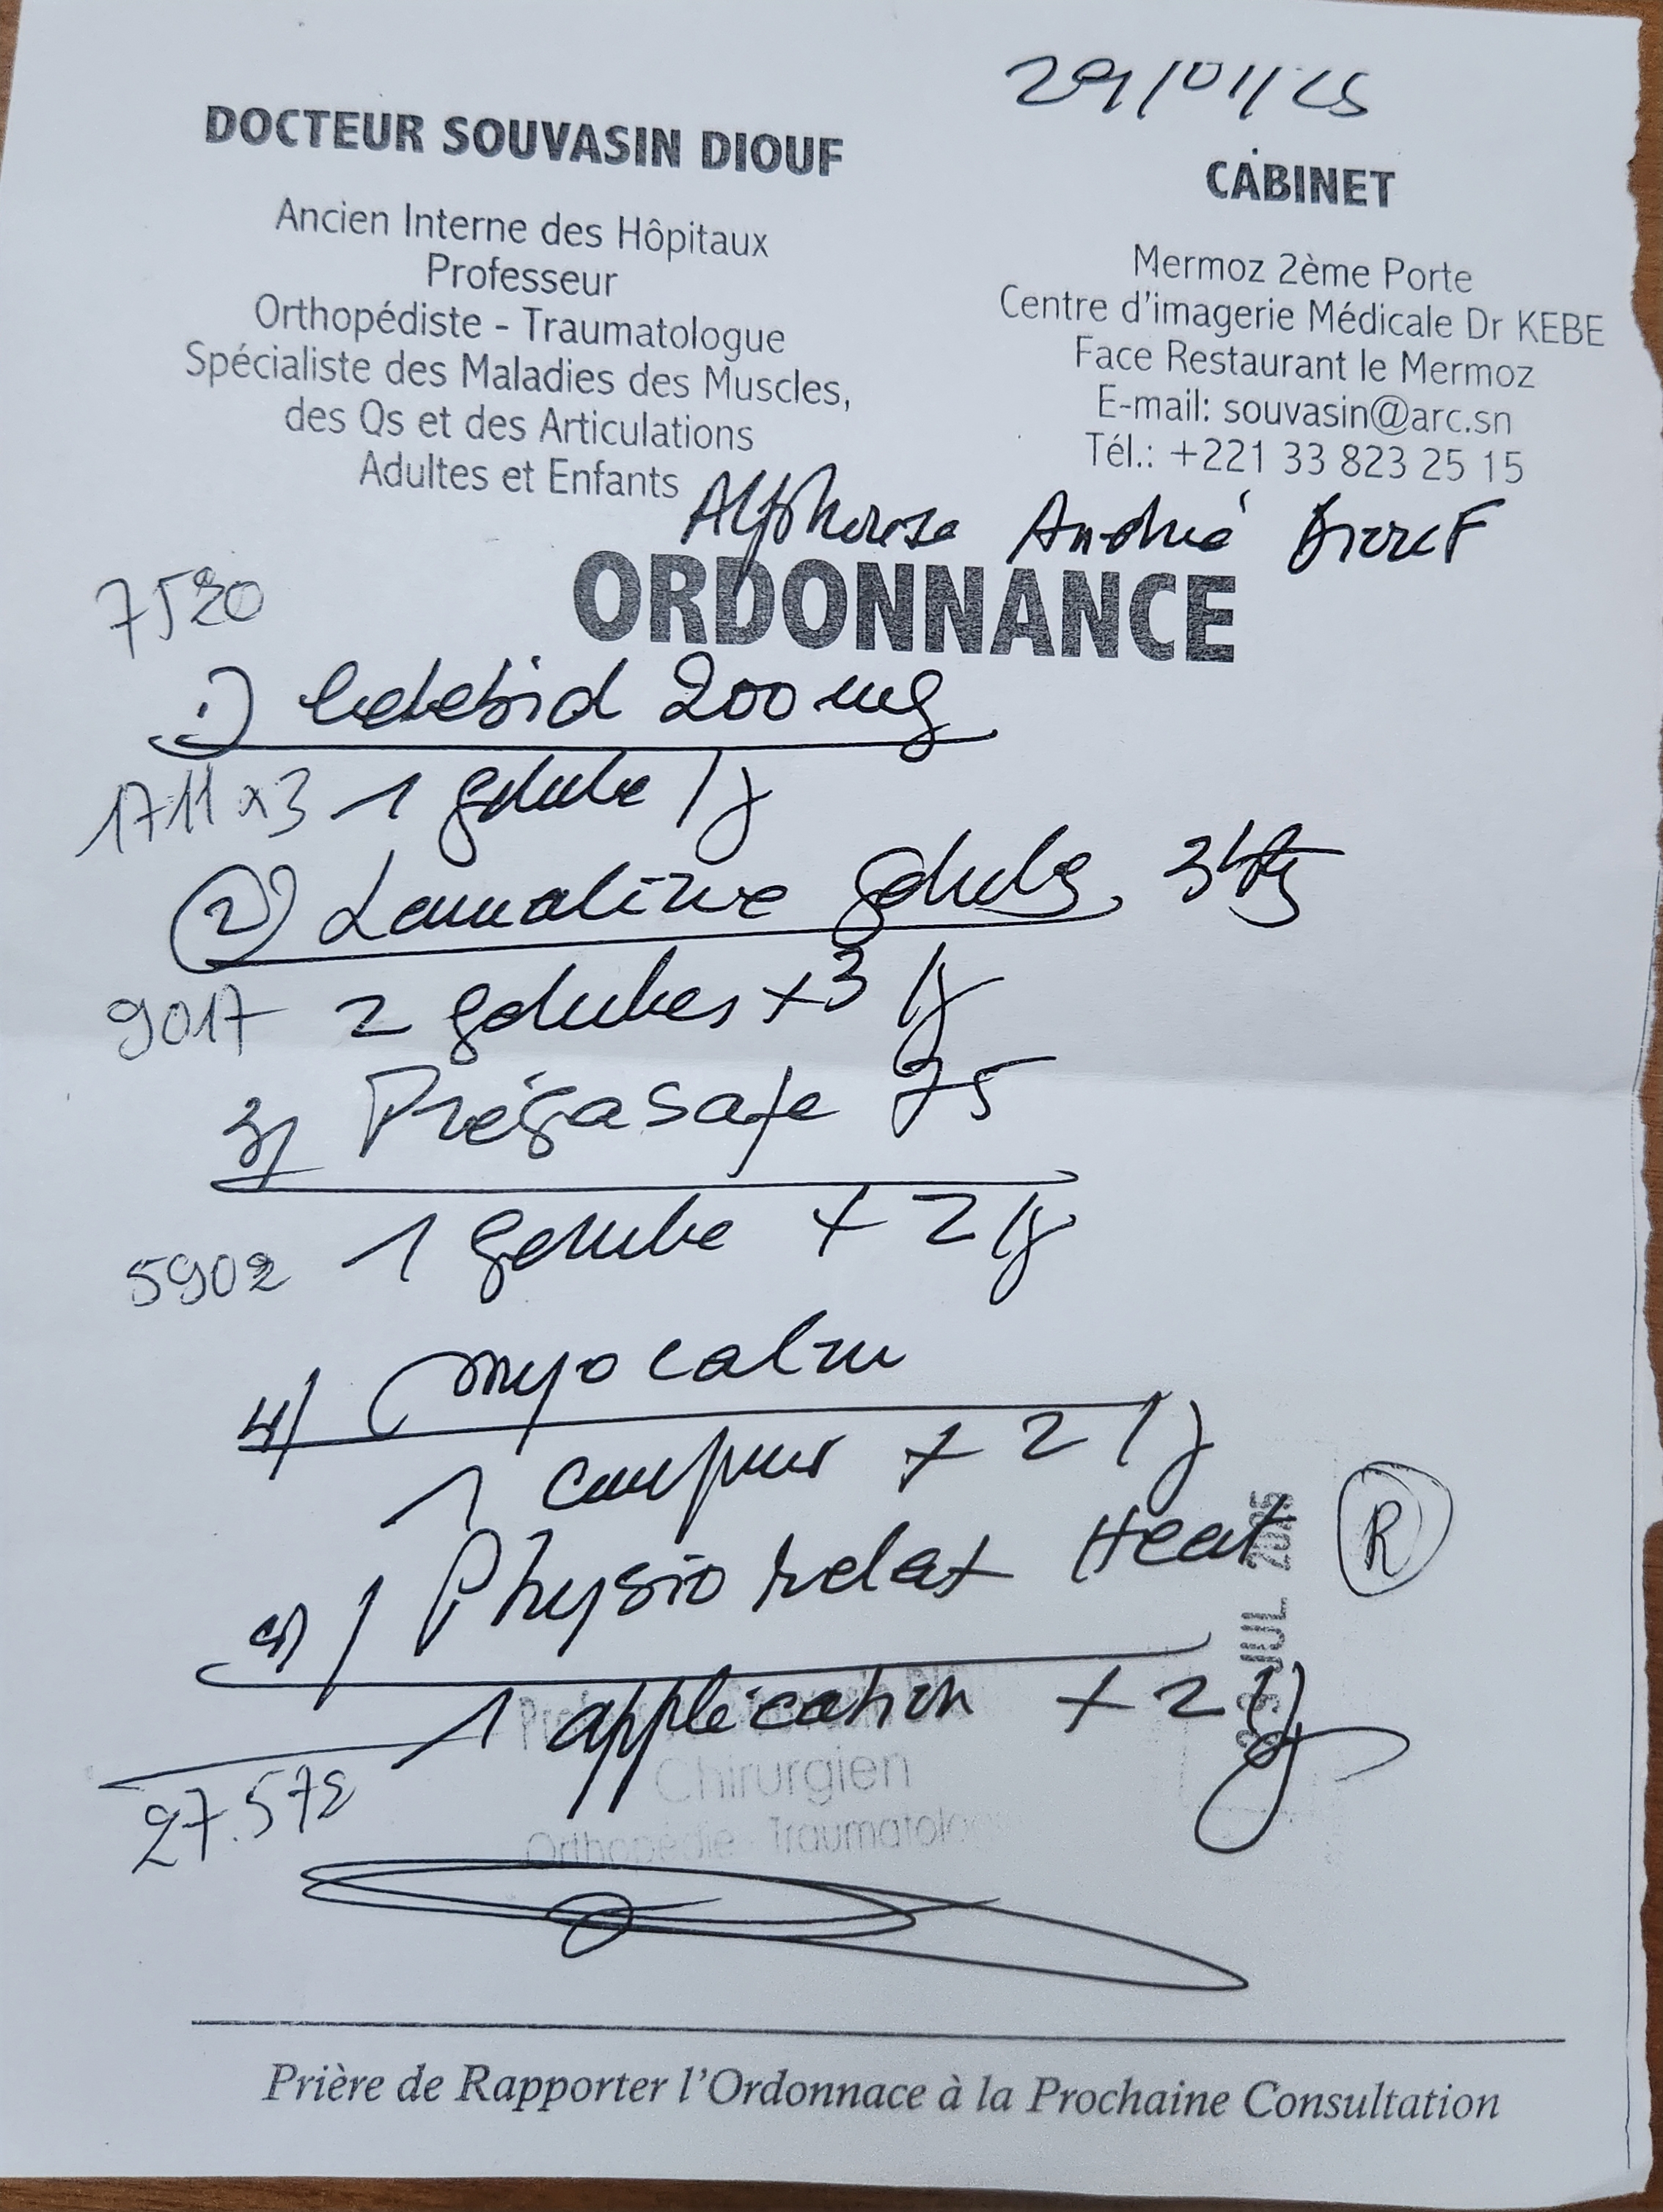 29/01/25
DOCTEUR SOUVASIN DIOUF
Ancien Interne des Hôpitaux
Professeur
Orthopédiste - Traumatologue
Spécialiste des Maladies des Muscles,
des Os et des Articulations
Adultes et Enfants
CABINET
Mermoz 2ème Porte
Centre d'imagerie Médicale Dr KEBE
Face Restaurant le Mermoz
E-mail: souvasin@arc.sn
Tél.: +221 33 823 25 15
Alphonse André Diouf
ORDONNANCE
7520
1) 200 mg
1711 x3 1 gélule /j
2) gélules
9017 2 gélules x3 /j
3) Prégasafe 75
5902 1 gélule x 2 /j
4) myocalm
1 x 2 /j
5) Physiorelax Heat
R
1 application x 2 /j
JUL 2025
Chirurgien
Orthopédie - Traumatolo
27.572
Prière de Rapporter l'Ordonnace à la Prochaine Consultation